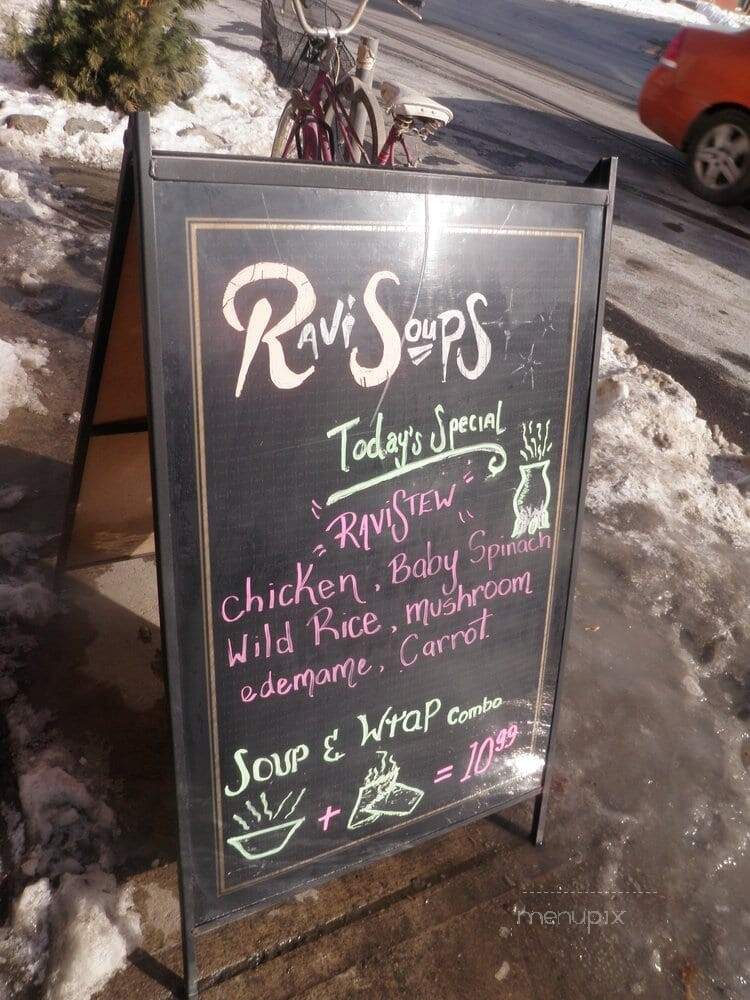 Ravi Soups
Today's Special
"RaviStew"
chicken, Baby Spinach
Wild Rice, mushroom
edemame, Carrot.
Soup & Wrap combo
+ = 10.99
menupix